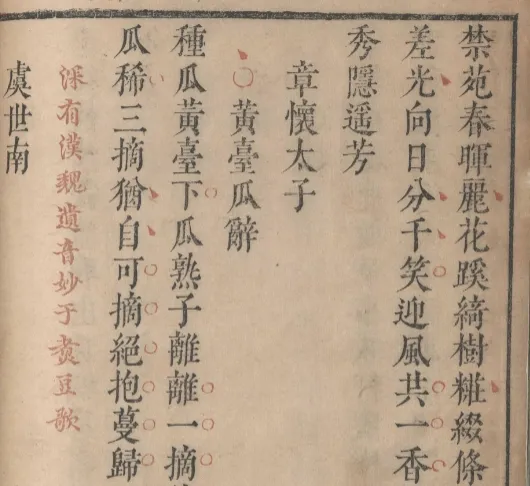 禁苑春暉麗花蹊綺樹糚綴條
差光向日分千笑迎風共一香
秀隱遥芳
章懷太子
黃臺瓜辭
種瓜黃臺下瓜熟子離離一摘
瓜稀三摘猶自可摘絕抱蔓歸
深有漢魏遺音妙于煮豆歌
虞世南